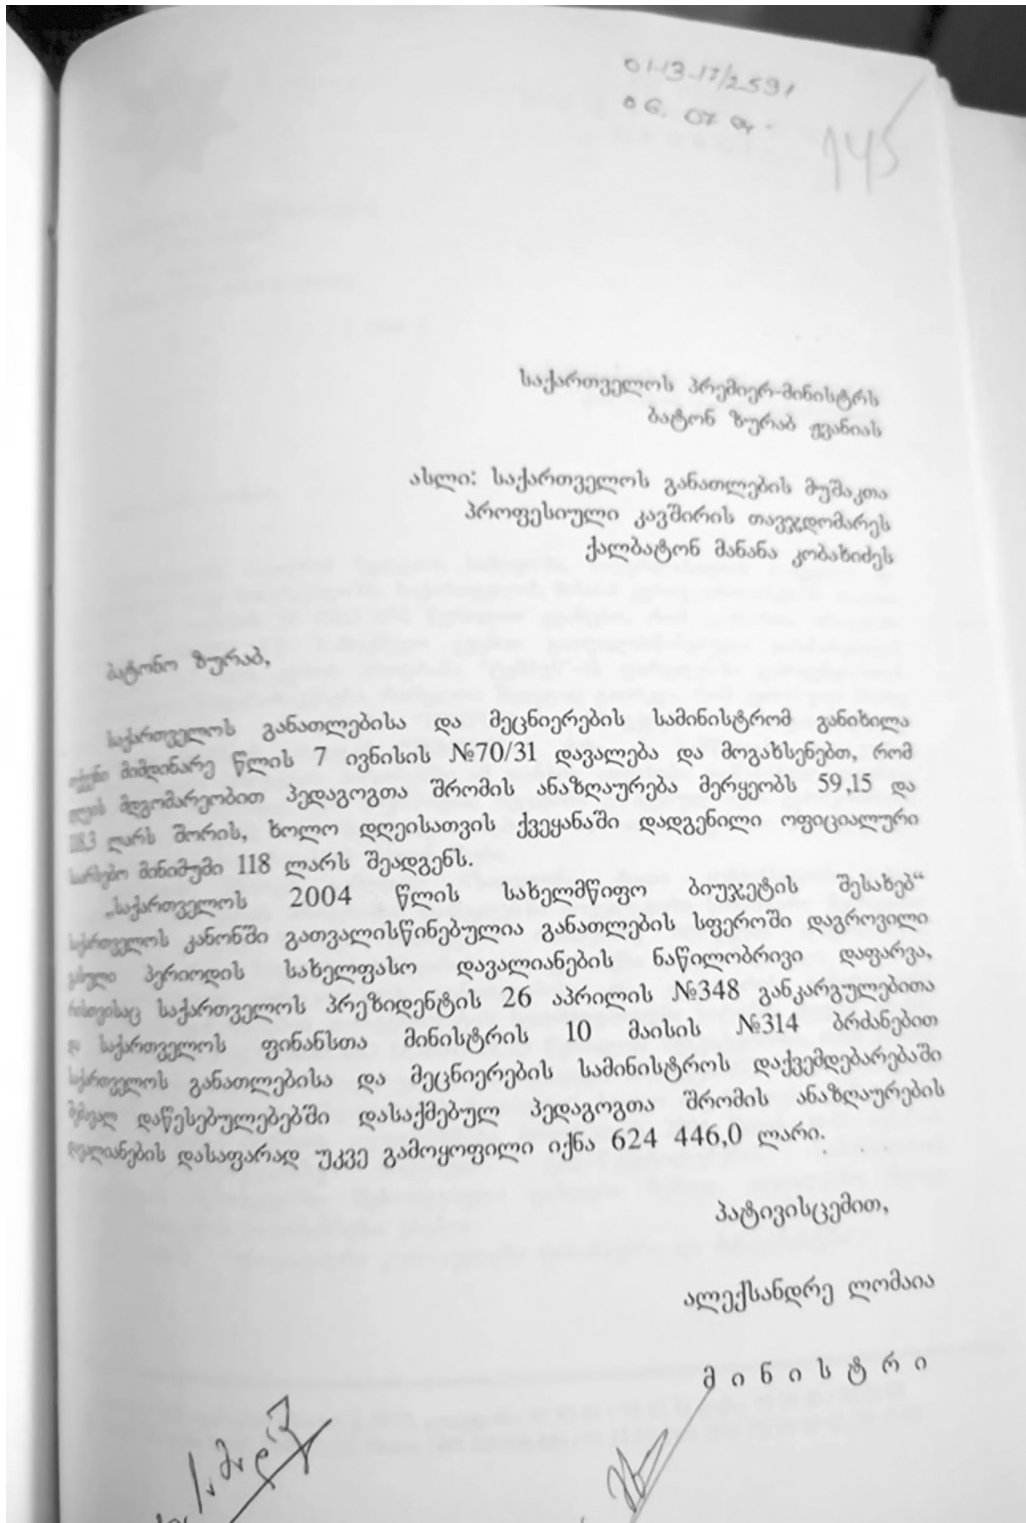 01-13-17/2591
06. 07 04.
145
საქართველოს პრემიერ-მინისტრს
ბატონ ზურაბ ჟვანიას
ასლი: საქართველოს განათლების მუშაკთა
პროფესიული კავშირის თავჯდომარეს
ქალბატონ მანანა კობახიძეს
ბატონო ზურაბ,
საქართველოს განათლებისა და მეცნიერების სამინისტრომ განიხილა
მიმდინარე წლის 7 ივნისის №70/31 დავალება და მოგახსენებთ, რომ
მდგომარეობით პედაგოგთა შრომის ანაზღაურება მერყეობს 59,15 და
ლარს შორის, ხოლო დღეისათვის ქვეყანაში დადგენილი ოფიციალური
საარსებო მინიმუმი 118 ლარს შეადგენს.
„საქართველოს 2004 წლის სახელმწიფო ბიუჯეტის შესახებ“
საქართველოს კანონში გათვალისწინებულია განათლების სფეროში დაგროვილი
გასული პერიოდის სახელფასო დავალიანების ნაწილობრივი დაფარვა,
რისთვისაც საქართველოს პრეზიდენტის 26 აპრილის №348 განკარგულებითა
და საქართველოს ფინანსთა მინისტრის 10 მაისის №314 ბრძანებით
საქართველოს განათლებისა და მეცნიერების სამინისტროს დაქვემდებარებაში
მყოფ დაწესებულებებში დასაქმებულ პედაგოგთა შრომის ანაზღაურების
დავალიანების დასაფარად უკვე გამოყოფილი იქნა 624 446,0 ლარი.
პატივისცემით,
ალექსანდრე ლომაია
მ ი ნ ი ს ტ რ ი